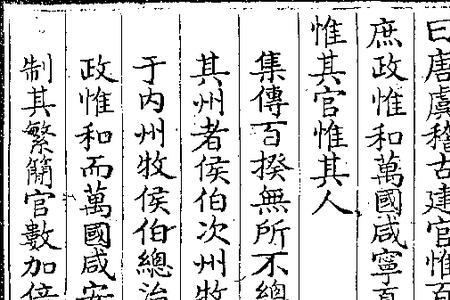 曰唐虞稽古建官惟百
庶政惟和萬國咸寧夏
惟其官惟其人
集傳百揆無所不總
其州者侯伯次州牧
于内州牧侯伯總治
政惟和而萬國咸安
制其繁簡官數加倍